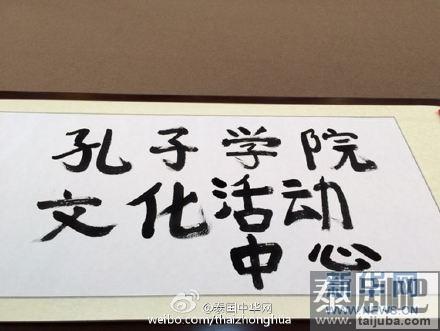 孔子学院
文化活动
中心
@泰国中华网
weibo.com/thaizhonghua
新华网
WWW.NEWS.CN
泰剧吧
www.taijuba.com